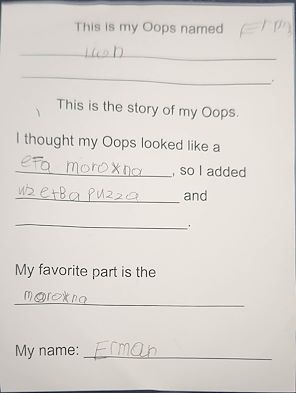 This is my Oops named
This is the story of my Oops.
I thought my Oops looked like a
moroxna, so I added
puzza and
.
My favorite part is the
moroxna
My name: Erman